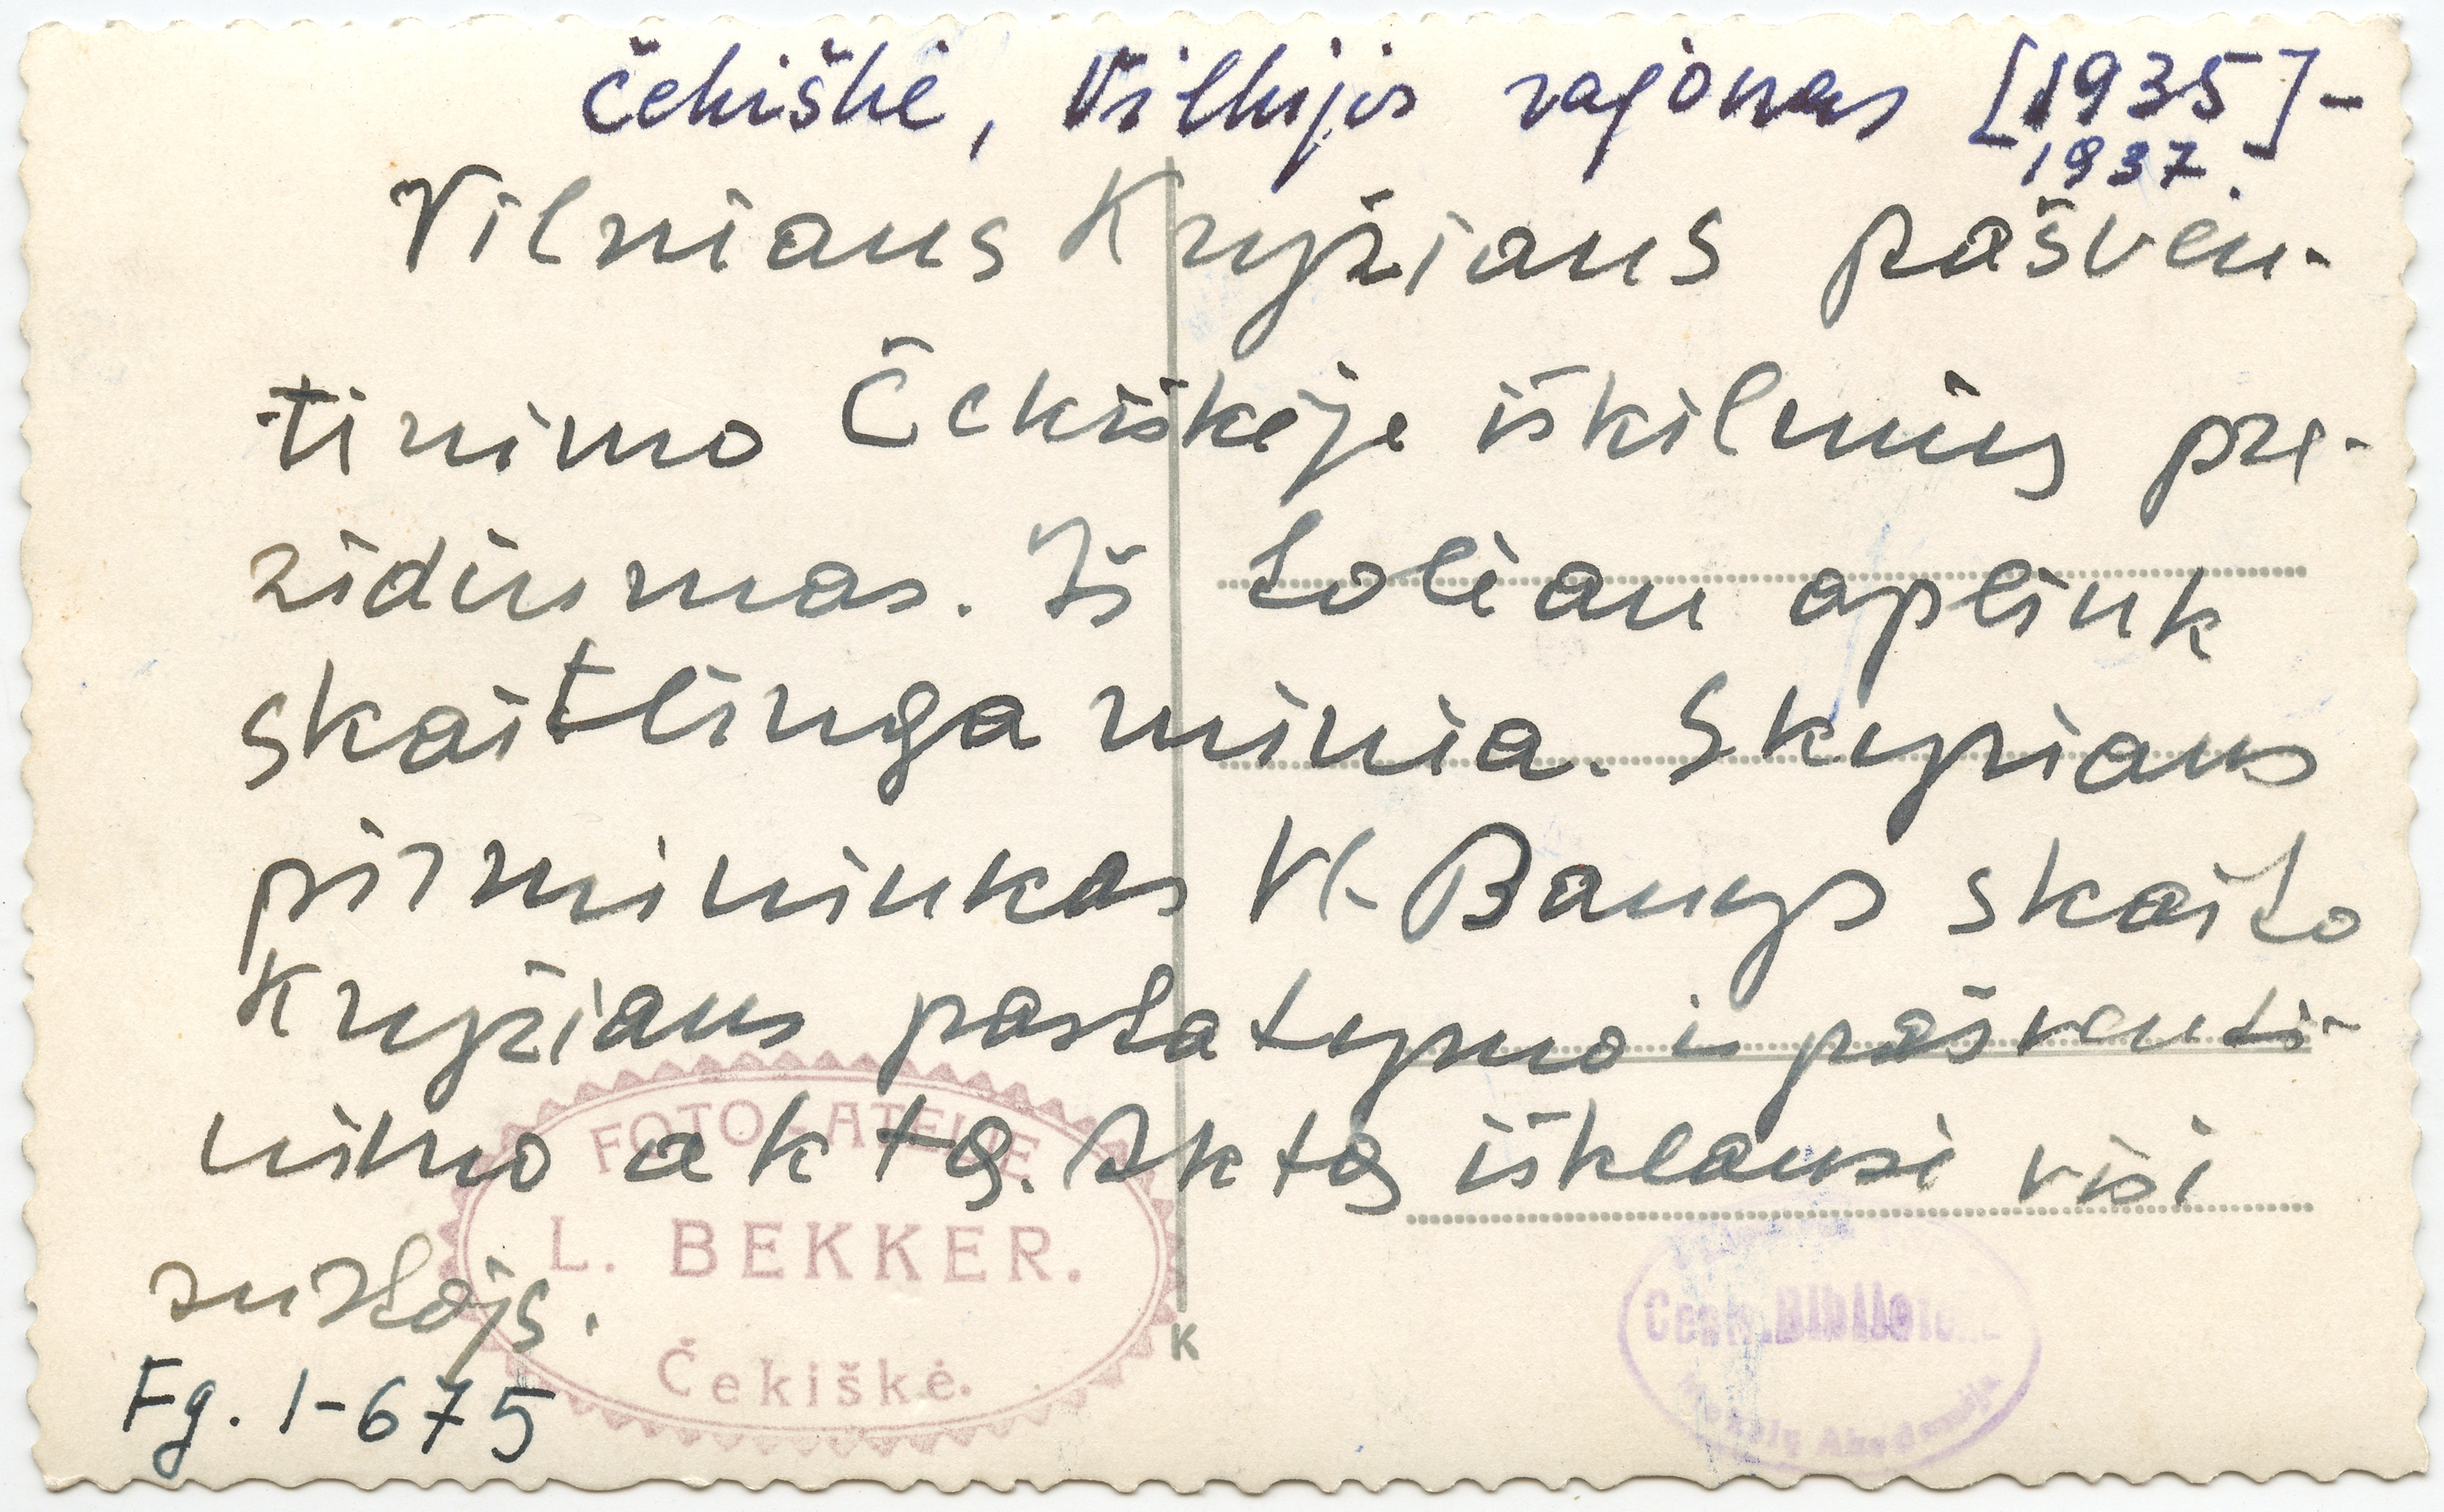 Čekiškė, Vilkijos rajonas [1935]-
1937.
Vilniaus Kryžiaus pašven-
-tinimo Čekiškėje iškilmių pre-
zidiumas. Iš toliau aplink
skaitlinga minia. Skyriaus
pirmininkas Vl. Banys skaito
Kryžiaus pastatymo ir pašventi-
nimo aktą. Aktą išklausė visi
FOTO-ATELIE
L. BEKKER.
Čekiškė.
K
Centr. Biblioteka
Mokslų Akademija
Fg. 1-675